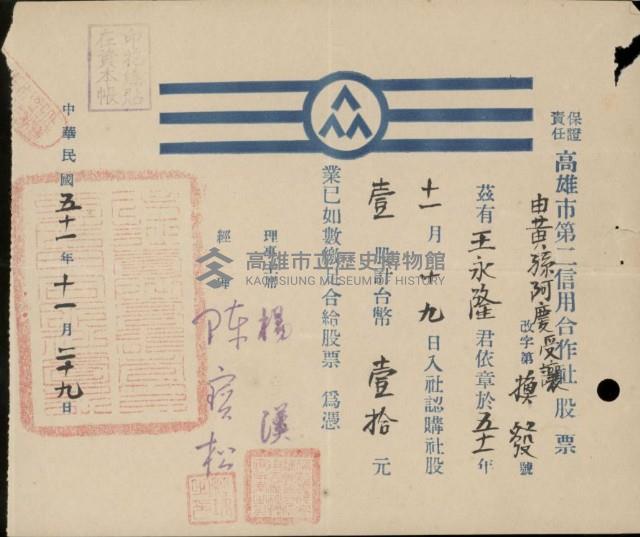 保證
責任
高雄市第二信用合作社股票
由黃孫阿慶受讓
改字第換發號
茲有王永隆君依章於五十一年
十一月十九日入社認購社股
壹股計台幣壹拾元
業已如數繳足合給股票為憑
理事主席 楊漢
經理 陳寶松
中華民國五十一年十一月二十九日
印花總貼
在資本帳
高雄市立歷史博物館
KAOHSIUNG MUSEUM OF HISTORY